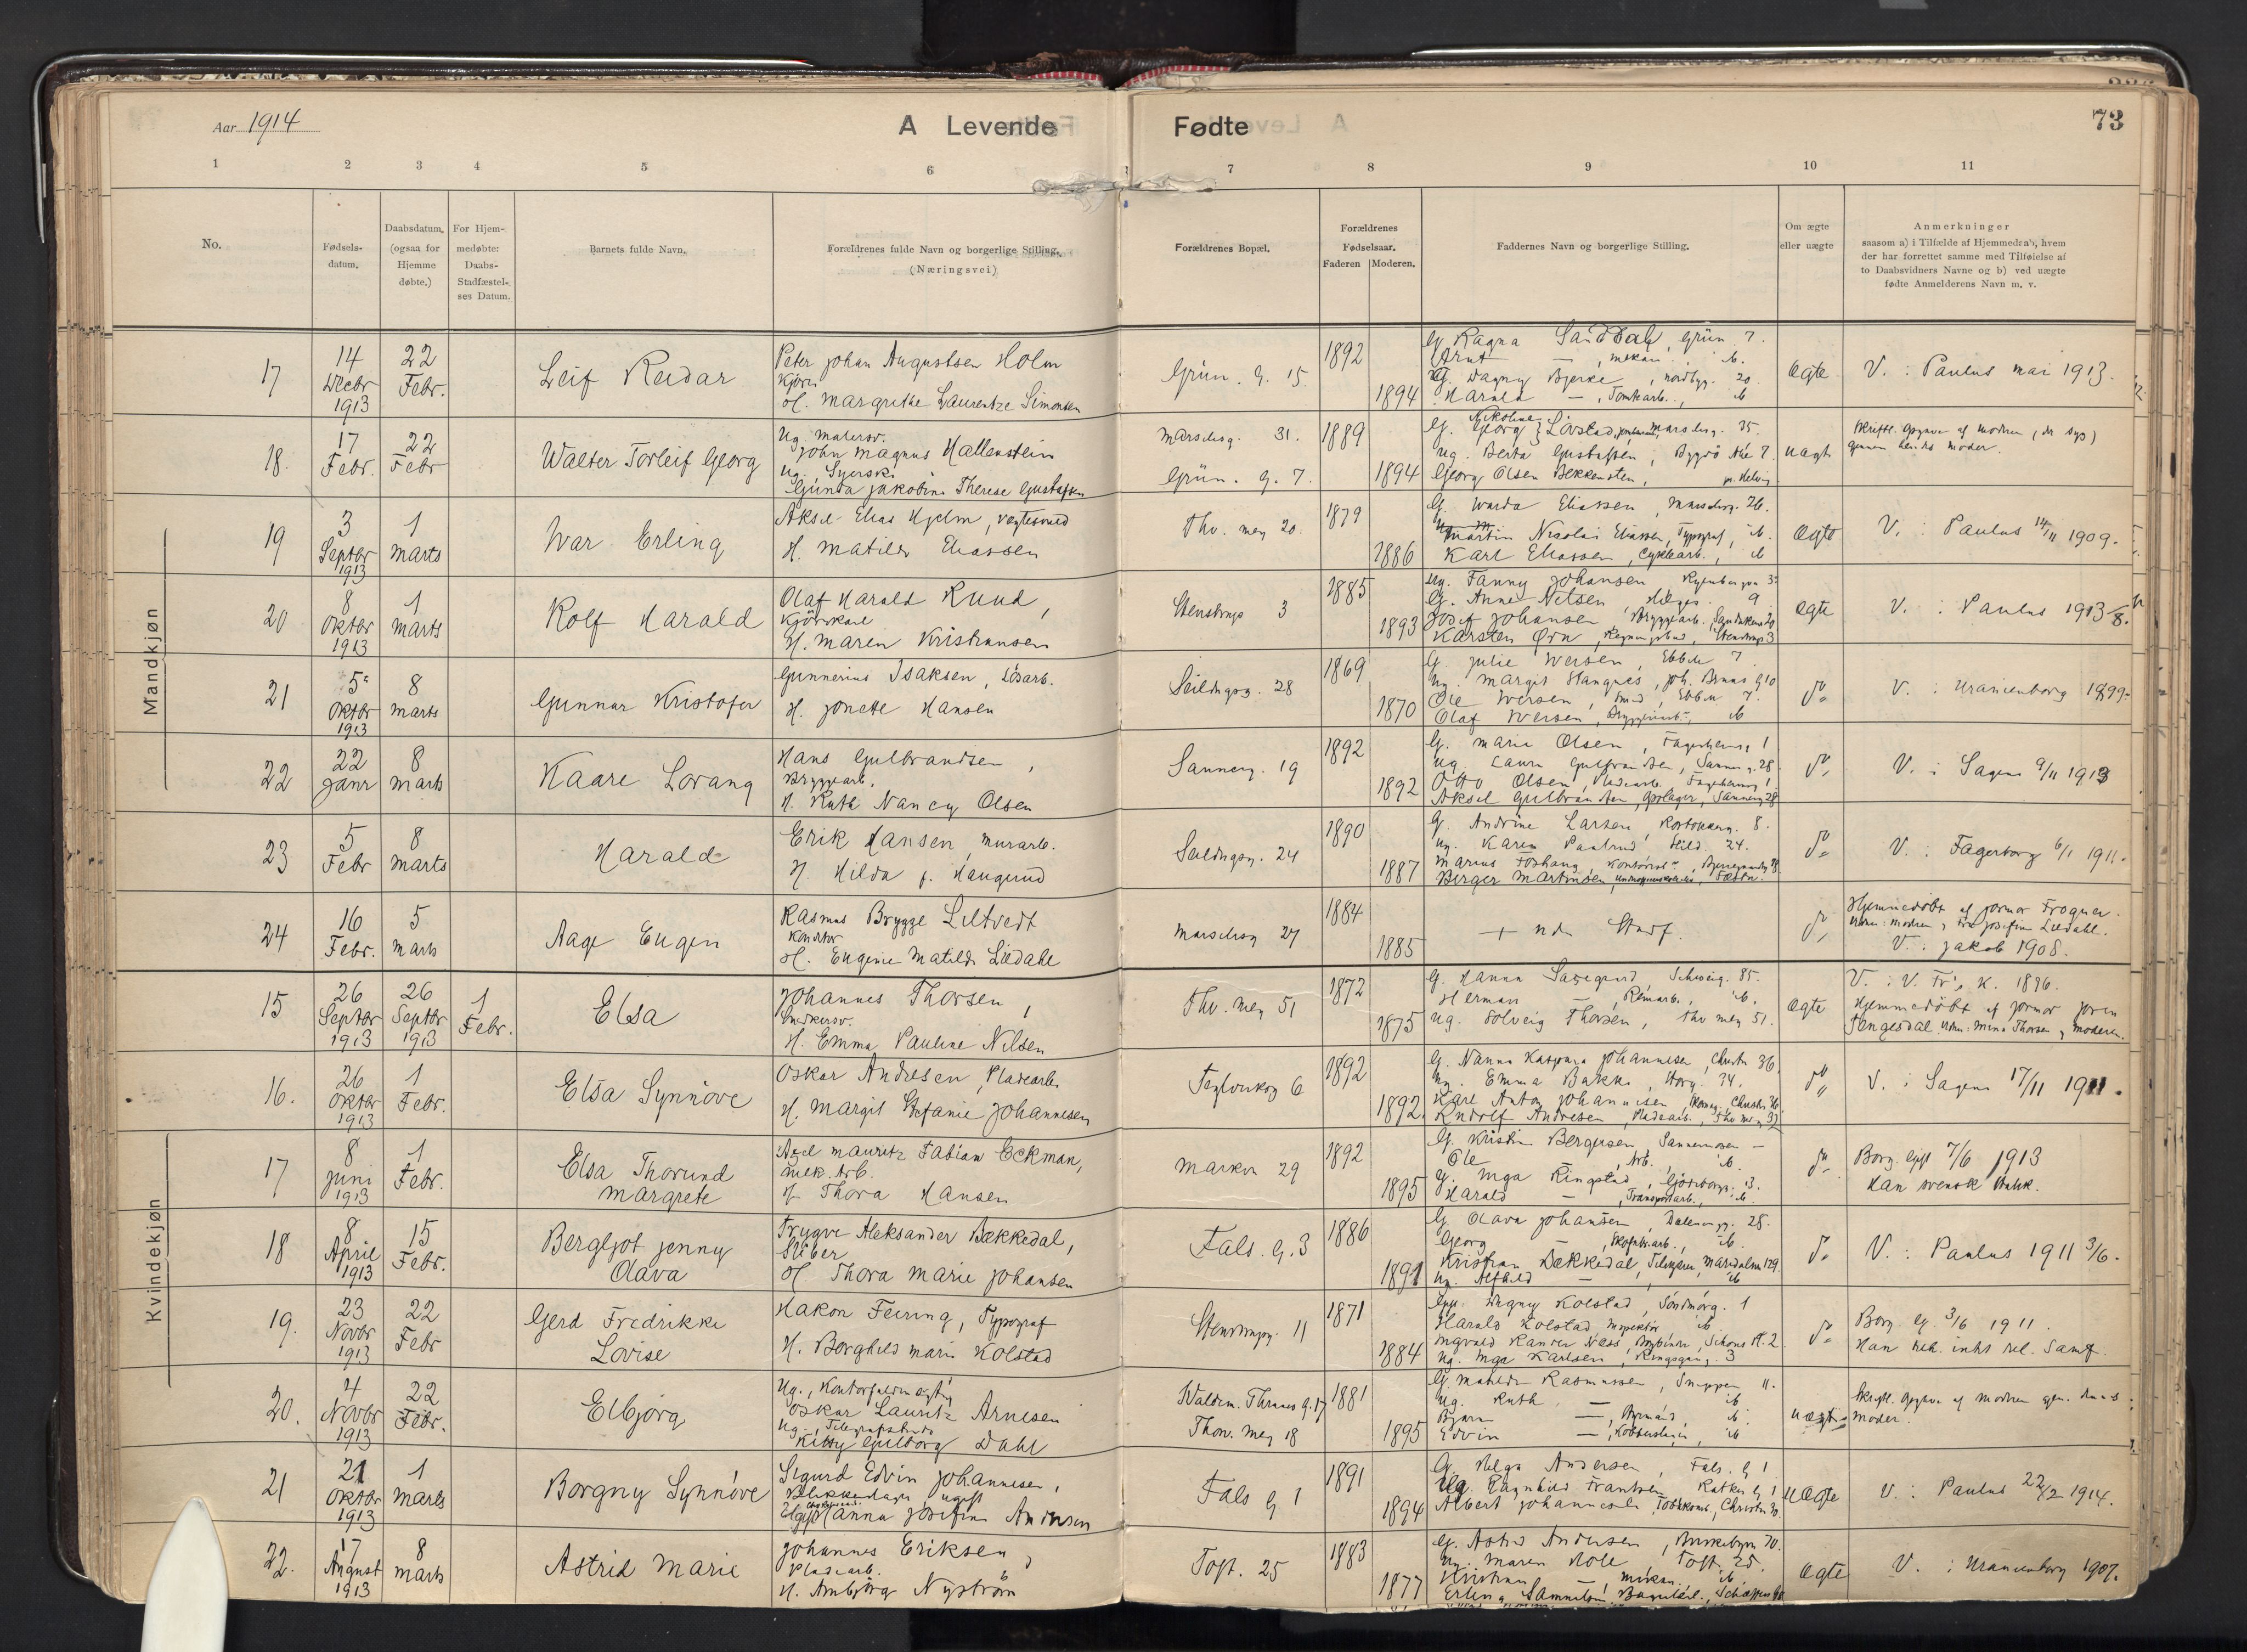 Aar 1914
A Levende Fødte
73
1 2 3 4 5 6 7 8 9 10 11
No.
Fødsels-
datum.
Daabsdatum.
(ogsaa for
Hjemme
døbte.)
For Hjem-
medøbte:
Daabs-
Stadfæstel-
ses Datum.
Barnets fulde Navn.
Forældrenes fulde Navn og borgerlige Stilling.
(Næringsvei)
Forældrenes Bopæl.
Forældrenes
Fødselsaar.
Faderen Moderen.
Faddernes Navn og borgerlige Stilling.
Om ægte
eller uægte
Anmerkninger
saasom a) i Tilfælde af Hjemmedaab, hvem
der har forrettet samme med Tilføielse af
to Daabsvidners Navne og b) ved uægte
fødte Anmelderens Navn m. v.
Mandkjøn
17
14
Decbr
1913
22
Febr.
Leif Reidar
Peter Johan Augustsen Holm
Kjører
H. Margrethe Laurentze Simonsen
Grün. g. 15.
1892
1894
G. Ragna Sanddal, Grün. 7.
Arnt — , mekan. ib.
G. Dagny Bjerke, Nordbyg. 20
Harald — , Tomtearb., ib
Ægte
V. : Paulus mai 1913.
18.
17
Febr.
22
Febr
Walter Torleif Georg
Ug. Malersv.
John Magnus Hallenstein
Ug. Syerske
Gunda Jakobine Therese Gustafsen
Marselisg. 31.
Grün. g. 7.
1889
1894
Nikoline
G. Georg } Løvstad, Marselisg. 35.
Ug. Berta Gustafsen, Bygdø Alle 7.
Georg Olsen Bekkensten,
uægte
Skriftl. Opgave af Modren (er syg)
gjennem hendes moder.
19
3
Septbr
1913
1
Marts
Ivar Erling
Aksel Elias Hjelm, vegtesmed
H. Matilde Eliassen
Thv. Mey 20.
1879
1886
G. Warda Eliassen, Marselisg. 26.
Martin Nicolai Eliassen, Typograf, ib.
Karl Eliassen, Cyklearb., ib
Ægte
V. : Paulus 14/11 1909.
20
8
Oktbr
1913
1
Marts
Rolf Harald
Olaf Harald Ruud,
Kjørekarl
H. Maren Kristiansen
Stenstrups 3
1885
1893
Ug. Fanny Johansen,
G. Anne Nilsen, 9
Josef Johansen, Bryggearb.
Karsten Ørn, Stenstrup 3
Ægte
V. : Paulus 1913
21
5
Oktbr
1913
8
Marts
Gunnar Kristofer
Gunnerius Isaksen, Løsarb.
H. Jonette Hansen
Seildugsg. 28
1869
1870
G. Julie Iversen, Ebbells 7
Ug. Margit Haugnes, Joh. Bruns g 10
Ole Iversen, Smed, Ebbells 7.
Olaf Iversen, Bryggearb., ib
do
V. : Uranienborg 1899
22
22
Janr
8
Marts
Kaare Lorang
Hans Gulbrandsen,
Bryggearb.
H. Ruth Nancy Olsen
Sannerg. 19
1892
1892
G. Marie Olsen, Fagerheimg 1
Ug. Laura Gulbrandsen, Sannerg. 28
Otto Olsen, Pladearb. Fagerheimg 1
Aksel Gulbrandsen, Sannerg 28
do
V. : Sagene 9/11 1913
23
5
Febr
8
Marts
Harald
Erik Hansen, murarb.
H. Hilda f. Haugerud
Seildugsg. 24
1890
1887
G. Andrine Larsen, 8.
Ug. Karen Paulrud Seild. 24.
Marius Foshaug Kontorist,
Birger Martinsen,
do
V. : Fagerborg 6/1 1911.
24
16
Febr.
5
Marts
Aage Eugen
Rasmus Brygge Liltvedt
Konditor
H. Eugenie Matilde Lildahl
Marselisg 27
1884
1885
+ nda Staf.
do
Hjemmedøbt af Jormor Frogner.
Vidner: Modren og Fru Josefine Lildahl.
V. : Jakob 1908.
Kvindekjøn
15
26
Septbr
1913
26
Septbr
1913
1
Febr.
Elsa
Johannes Thorsen,
Snedkersv.
H. Emma Pauline Nilsen
Thv. Mey 51
1872
1875
G. Hanna Saxegaard, Schweig. 85.
Herman — , Remarb., ib.
Ug. Solveig Thorsen, Thv Mey 51.
Ægte
V. : V. Fr's K. 1896.
Hjemmedøbt af Jormor Joren
Tengesdal Vidn: Mina Thorsen og Moderen.
16.
26
Oktbr
1913
1
Febr.
Elsa Synnøve
Oskar Andresen, Pladearb.
H. Margit Stefanie Johannesen
Teglverksg 6
1892
1892
G. Nanna Kaspara Johannesen, Christies 36.
Ug. Emma Bakke, Storg. 34.
Karl Anton Johannesen, Christies 36
Rudolf Andresen, Pladearb., Thv Mey 32
do
V. : Sagene 17/11 1911.
17
8
Juni
1913
1
Febr.
Elsa Thorund
Margrete
Axel Mauritz Fabian Eckman,
mek. Arb.
H Thora Hansen
Markv. 29
1892
1895
G. Kristin Bergersen, Sannermosen —
Ole — , Arb., ib.
G. Inga Ringstad, 13.
Harald — , Transportarb., ib.
do
Borg. egt 7/6 1913
Han svensk Statsk.
18
8
April
1913
15
Febr.
Bergljot Jenny
Olava
Trygve Aleksander Bækkedal,
Sliber
H Thora Marie Johansen
Fals. g. 3
1886
1891
G. Olava Johansen, Dælenengg. 25.
Georg — , Skofabr.arb., ib.
Kristian Bækkedal, Maridalsv 129.
Ug. Alfhild — ib
do
V. : Paulus 1911 3/6.
19.
23
Novbr
1913
22
Febr
Gerd Fredrikke
Lovise
Hakon Feiring, Typograf
H. Borghild Marie Kolstad
Stenstrupg. 11
1871
1884
Dagny Kolstad, Søndreg. 1
Harald Kolstad Inspektør ib
Ingvald Randor Næss,
Ug. Inga Karlsen, Ringsgang. 3
do
Borg. eg. 3/6 1911.
Han heb. inkt rel. Samf.
20.
4
Novbr
1913
22
Febr.
Elbjørg
Ug., Kontorfuldmægtig
Oskar Lauritz Arnesen
Ug., Telegrafistinde
Kitty Gulborg Dahl
Waldem. Thranes g. 17
Thorv. Mey 18
1881
1895
G. Mathilde Rasmussen, Snippen 11.
Ug. Ruth — ib
Bjarn — , ib
Edvin — , ib
uægte
Skriftl. Opgave af Modren gjen. dennes
Moder.
21
21
Oktbr
1913
1
Marts
Borgny Synnøve
Sigurd Edvin Johannesen,
Blikkenslager ugift
Hanna Josefine Andersen
Fals g 1
1891
1894
G. Helga Andersen, Fals. g 1
Ug. Ragnhild Frantzen Rathkes g 1
Albert Johannesen, Christies 30.
uÆgte
V. : Paulus 22/2 1914.
22.
17
August
1913
8
Marts
Astrid Marie
Johannes Eriksen,
Pladearb.
H. Ambjørg Nystrøm
Toft. 25
1883
1877
G. Astrid Andersen, 70.
Ug. Maren Hole, Toft. 25.
Kristian — , mekan. ib.
Erling Samuelsen,
Ægte
V. : Uranienborg 1907.